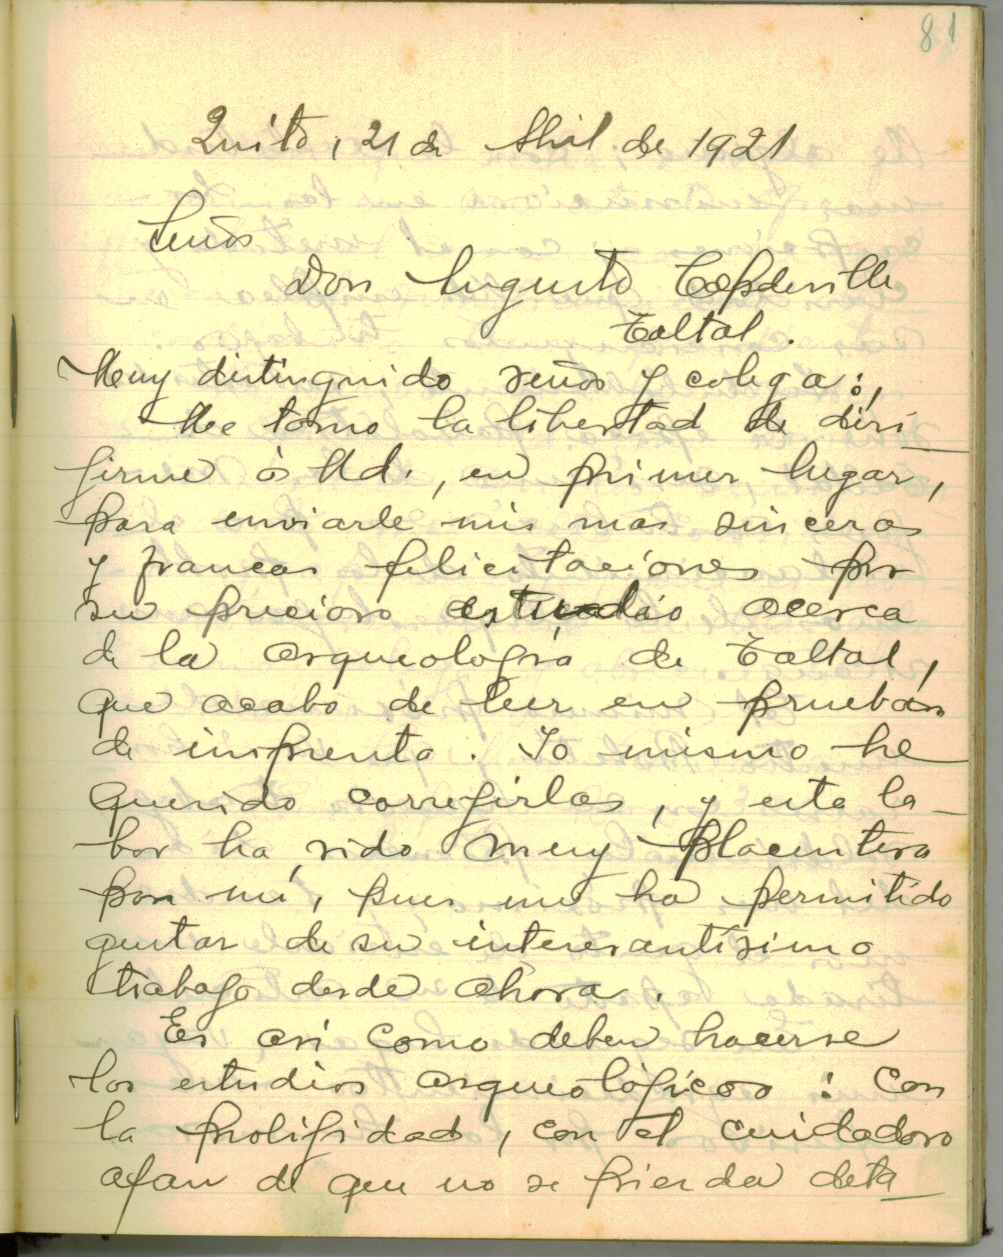 81
Quito, 21 de Abril de 1921
Señor
Don Augusto Capdeville
Taltal.
Muy distinguido señor y colega:
Me tomo la libertad de diri
girme á Ud., en primer lugar,
para enviarle mis mas sinceras
y francas felicitaciones por
su precioso estudio acerca
de la arqueología de Taltal,
que acabo de leer en pruebas
de imprenta. Yo mismo he
querido corregirlas, y esta la-
bor ha sido muy placentera
para mí, pues me ha permitido
gustar de su interesantísimo
trabajo desde ahora.
Es asi como deben hacerse
los estudios arqueológicos: con
la prolijidad, con el cuidadoso
afan de que no se pierda deta